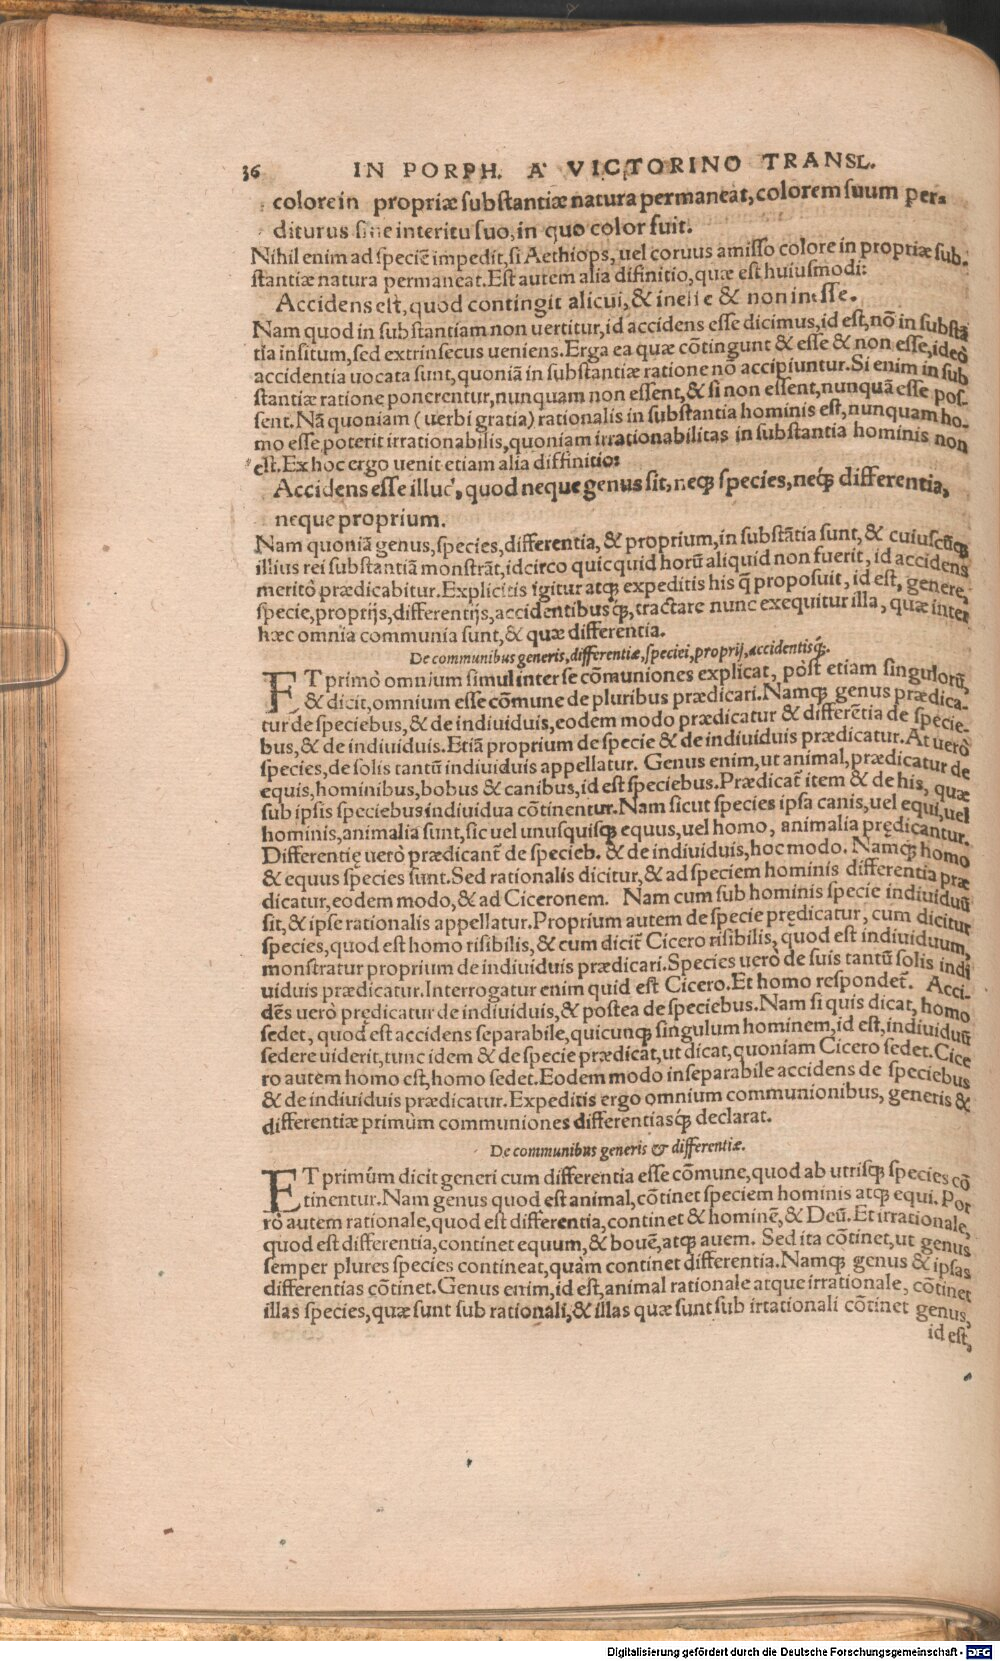 36 IN PORPH. A' VICTORINO TRANSL.
colore in propriæ substantiæ natura permaneat, colorem suum per-
diturus sine interitu suo, in quo color fuit.
Nihil enim ad speciē impedit, si Aethiops, uel coruus amisso colore in propriæ sub-
stantiæ natura permaneat. Est autem alia difinitio, quæ est huiusmodi:
Accidens est, quod contingit alicui, & inesse & non inesse.
Nam quod in substantiam non uertitur, id accidens esse dicimus, id est, nō in substā
tia insitum, sed extrinsecus ueniens. Erga ea quæ cōtingunt & esse & non esse, ideò
accidentia uocata sunt, quoniā in substantiæ ratione nō accipiuntur. Si enim in sub
stantiæ ratione ponerentur, nunquam non essent, & si non essent, nunquā esse pos-
sent. Nā quoniam (uerbi gratia) rationalis in substantia hominis est, nunquam ho-
mo esse poterit irrationabilis, quoniam irrationabilitas in substantia hominis non
est. Ex hoc ergo uenit etiam alia diffinitio:
Accidens esse illud, quod neque genus sit, neq́; species, neq́; differentia,
neque proprium.
Nam quoniā genus, species, differentia, & proprium, in substātia sunt, & cuiuscūq;
illius rei substantiā monstrāt, idcirco quicquid horū aliquid non fuerit, id accidens
meritò prædicabitur. Explicitis igitur atq; expeditis his q̄ proposuit, id est, genere,
specie, proprijs, differentijs, accidentibusq́;, tractare nunc exequitur illa, quæ inter
hæc omnia communia sunt, & quæ differentia.
De communibus generis, differentiæ, speciei, proprij, accidentisq́;.
ET primò omnium simul inter se cōmuniones explicat, pòst etiam singulorū,
& dicit, omnium esse cōmune de pluribus prædicari. Namq; genus prædica-
tur de speciebus, & de indiuiduis, eodem modo prædicatur & differētia de specie-
bus, & de indiuiduis. Etiā proprium de specie & de indiuiduis prædicatur. At uerò
species, de solis tantū indiuiduis appellatur. Genus enim, ut animal, prædicatur de
equis, hominibus, bobus & canibus, id est speciebus. Prædicat̄ item & de his, quæ
sub ipsis speciebus indiuidua cōtinentur. Nam sicut species ipsa canis, uel equi, uel
hominis, animalia sunt, sic uel unusquisq; equus, uel homo, animalia prędicantur.
Differentię uerò prædicant̄ de specieb. & de indiuiduis, hoc modo. Namq; homo
& equus species sunt. Sed rationalis dicitur, & ad speciem hominis differentia præ
dicatur, eodem modo, & ad Ciceronem. Nam cum sub hominis specie indiuiduū
sit, & ipse rationalis appellatur. Proprium autem de specie prędicatur, cum dicitur
species, quod est homo risibilis, & cum dicit̄ Cicero risibilis, quod est indiuiduum,
monstratur proprium de indiuiduis prædicari. Species uerò de suis tantū solis indi
uiduis prædicatur. Interrogatur enim quid est Cicero. Et homo respondet̄. Acci-
dēs uerò prędicatur de indiuiduis, & postea de speciebus. Nam si quis dicat, homo
sedet, quod est accidens separabile, quicunq; singulum hominem, id est, indiuiduū
sedere uiderit, tunc idem & de specie prædicat, ut dicat, quoniam Cicero sedet. Cice
ro autem homo est, homo sedet. Eodem modo inseparabile accidens de speciebus
& de indiuiduis prædicatur. Expeditis ergo omnium communionibus, generis &
differentiæ primùm communiones differentiasq́; declarat.
De communibus generis & differentiæ.
ET primùm dicit generi cum differentia esse cōmune, quod ab utrisq; species cō
tinentur. Nam genus quod est animal, cōtinet speciem hominis atq; equi. Por
rò autem rationale, quod est differentia, continet & hominē, & Deū. Et irrationale,
quod est differentia, continet equum, & bouē, atq; auem. Sed ita cōtinet, ut genus
semper plures species contineat, quàm continet differentia. Namq; genus & ipsas
differentias cōtinet. Genus enim, id est, animal rationale atque irrationale, cōtinet
illas species, quæ sunt sub rationali, & illas quæ sunt sub irrationali cōtinet genus,
id est,
Digitalisierung gefördert durch die Deutsche Forschungsgemeinschaft - DFG